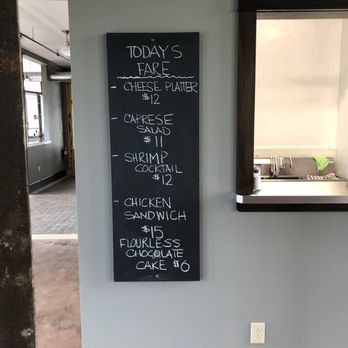 TODAY'S
FARE
- CHEESE PLATTER
$12
- CAPRESE
SALAD
$11
- SHRIMP
COCKTAIL
$12
- CHICKEN
SANDWICH
$15
FLOURLESS
CHOCOLATE
CAKE $6